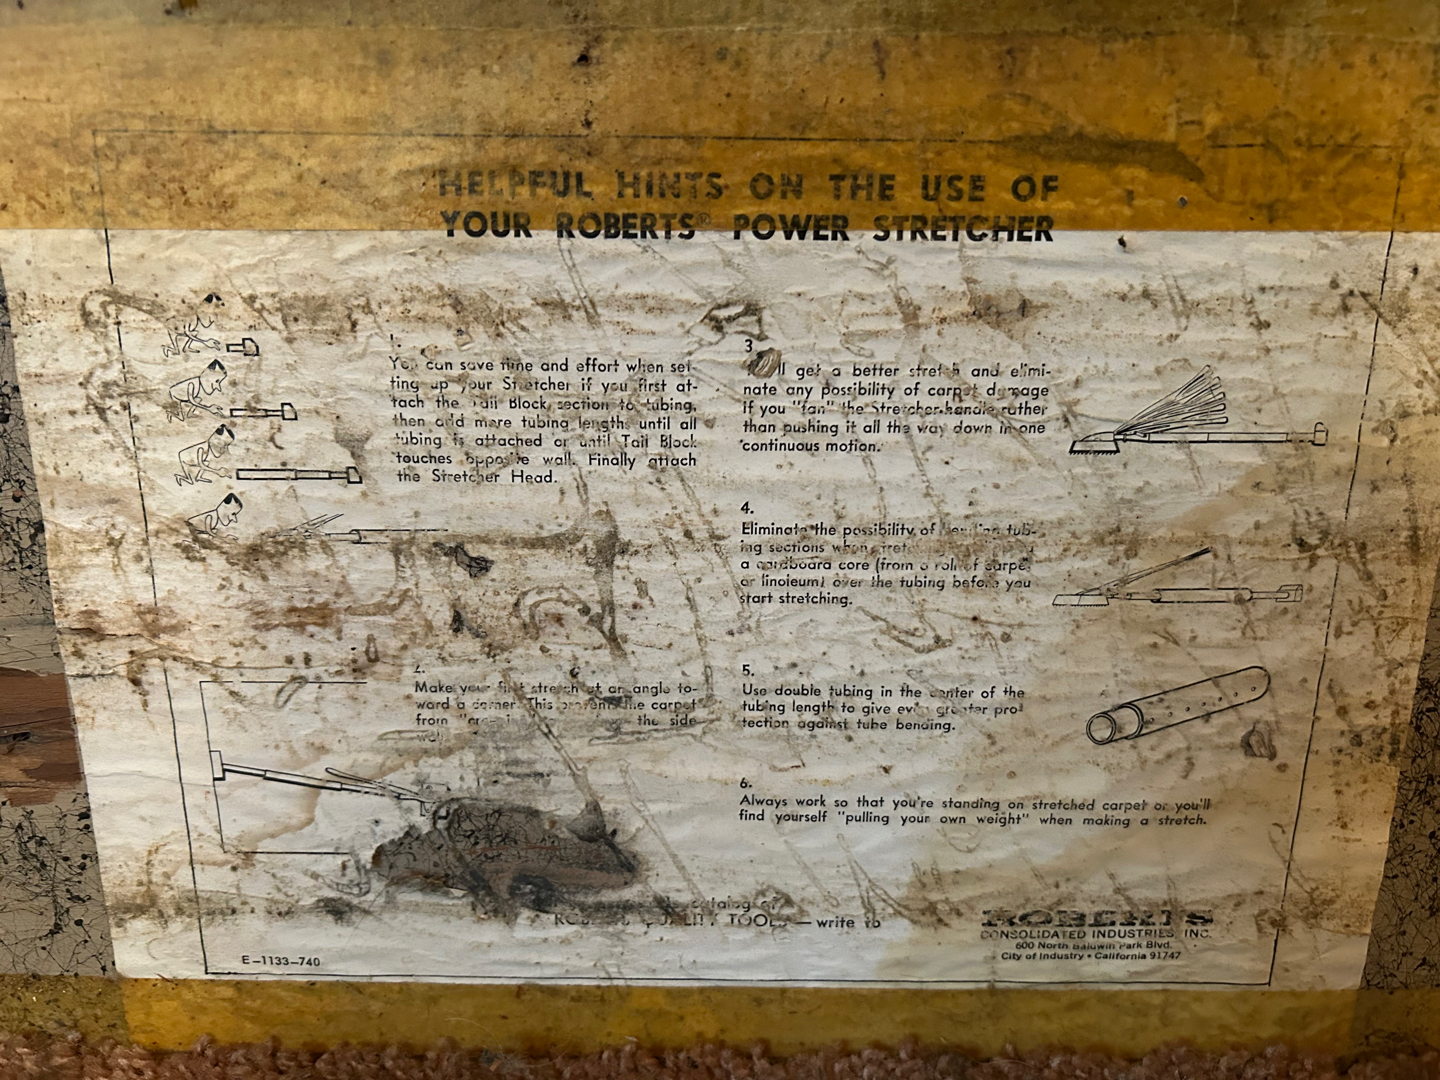 HELPFUL HINTS ON THE USE OF
YOUR ROBERTS® POWER STRETCHER
1.
You can save time and effort when set-
ting up your Stretcher if you first at-
tach the Tail Block section to tubing,
then add more tubing lengths until all
tubing is attached or until Tail Block
touches opposite wall. Finally attach
the Stretcher Head.
2.
Make your first stretch at an angle to-
ward a corner. This prevents the carpet
from the side
wall.
3
get a better stretch and elimi-
nate any possibility of carpet damage
if you "fan" the Stretcher handle rather
than pushing it all the way down in one
continuous motion.
4.
Eliminate the possibility of bending tub-
ing sections when
a cardboard core (from a roll of carpet
or linoleum) over the tubing before you
start stretching.
5.
Use double tubing in the center of the
tubing length to give even greater pro-
tection against tube bending.
6.
Always work so that you're standing on stretched carpet or you'll
find yourself "pulling your own weight" when making a stretch.
catalog of
ROBERTS QUALITY TOOLS — write to
ROBERTS
CONSOLIDATED INDUSTRIES, INC.
600 North Baldwin Park Blvd.
City of Industry • California 91747
E-1133-740